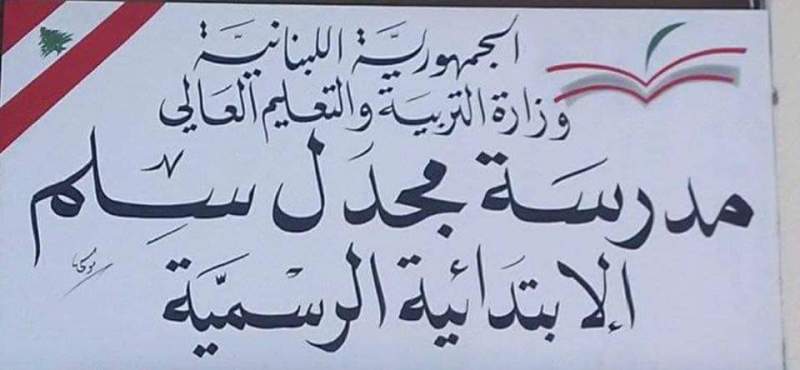 الجمهوريّة اللبنانيّة
وزارة التربية والتعليم العالي
مدرسة مجدل سلم
الإبتدائية الرسميّة